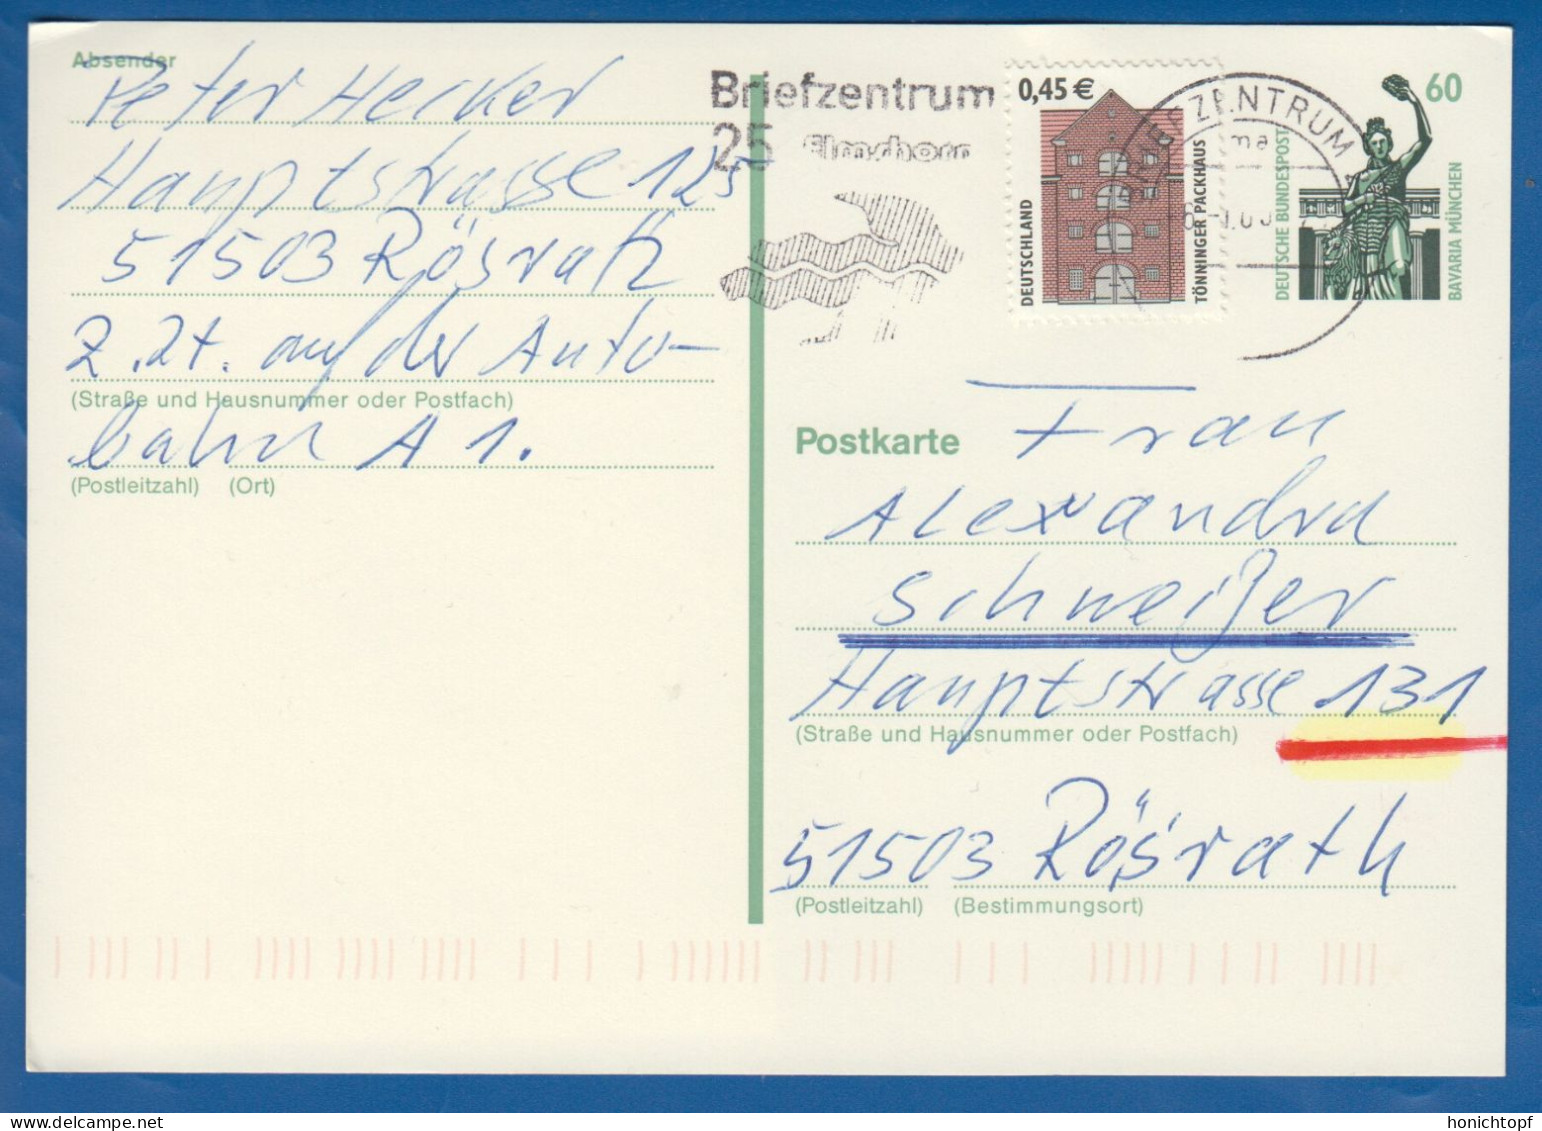 Absender
Peter Hecker
Hauptstrasse 125
51503 Rösrath
z.Zt. auf der Auto-
(Straße und Hausnummer oder Postfach)
bahn A 1.
(Postleitzahl) (Ort)
Briefzentrum
25 Elmshorn
0,45€
DEUTSCHLAND
TÖNNINGER PACKHAUS
BRIEFZENTRUM
60
DEUTSCHE BUNDESPOST
BAVARIA MÜNCHEN
Postkarte
Frau
Alexandra
Schweißer
Hauptstrasse 131
(Straße und Hausnummer oder Postfach)
51503 Rösrath
(Postleitzahl) (Bestimmungsort)
honichtopf